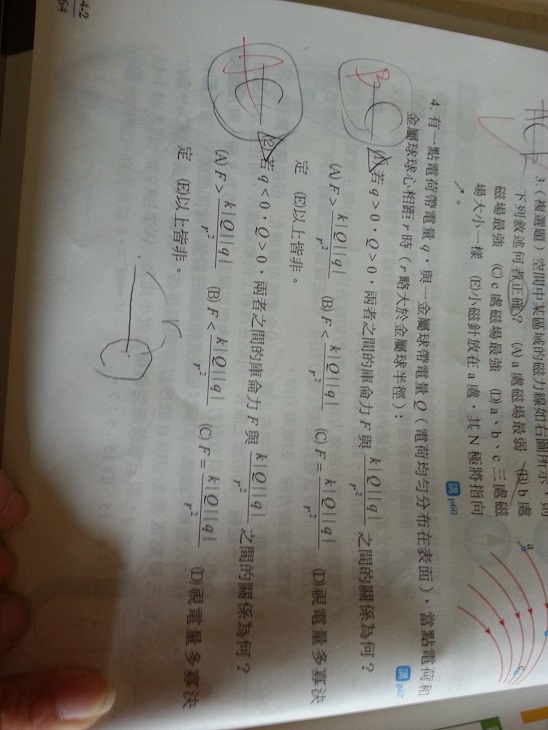 3.（複選題）空間中某區域的磁力線如右圖所示，則
下列敘述何者正確？ (A) a 處磁場最弱 (B) b 處
磁場最強 (C) c 處磁場最強 (D) a、b、c 三處磁
場大小一樣 (E)小磁針放在 a 處，其 N 極將指向
↗。
講 p60
a
c
4. 有一點電荷帶電量 q，與一金屬球帶電量 Q（電荷均勻分布在表面），當點電荷和
金屬球球心相距 r 時（r 略大於金屬球半徑）：
講 p67
B C
(1)若 q＞0，Q＞0，兩者之間的庫侖力 F 與 k|Q||q|/r² 之間的關係為何？
(A) F＞k|Q||q|/r² (B) F＜k|Q||q|/r² (C) F＝k|Q||q|/r² (D)視電量多寡決
定 (E)以上皆非。
A C
(2)若 q＜0，Q＞0，兩者之間的庫侖力 F 與 k|Q||q|/r² 之間的關係為何？
(A) F＞k|Q||q|/r² (B) F＜k|Q||q|/r² (C) F＝k|Q||q|/r² (D)視電量多寡決
定 (E)以上皆非。
r
4-2
64